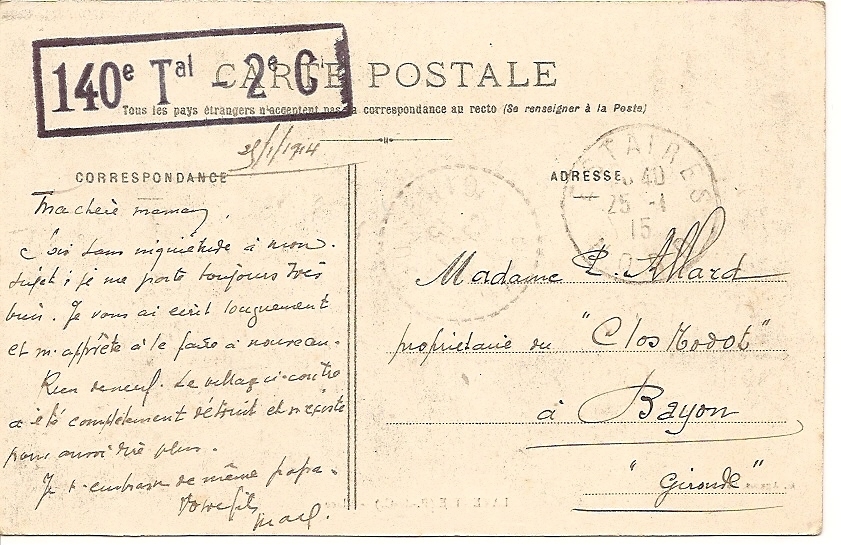 140e Tal - 2e Cie
CARTE POSTALE
Tous les pays étrangers n'acceptent pas la correspondance au recto (Se renseigner à la Poste)
25/1/1914
CORRESPONDANCE
Ma chère maman,
Sois sans inquiétude à mon
sujet ; je me porte toujours très
bien. Je vous ai écrit longuement
et m'apprête à le faire à nouveau.
Rien de neuf. Le village ci-contre
a été complètement détruit et n'existe
pour ainsi dire plus.
Je t'embrasse de même papa.
Votre fils
Marcel.
ADRESSE
ESTAIRES
40
25 -1
15
Madame P. Allard
propriétaire du "Clos Modot"
à Bayon
"Gironde"